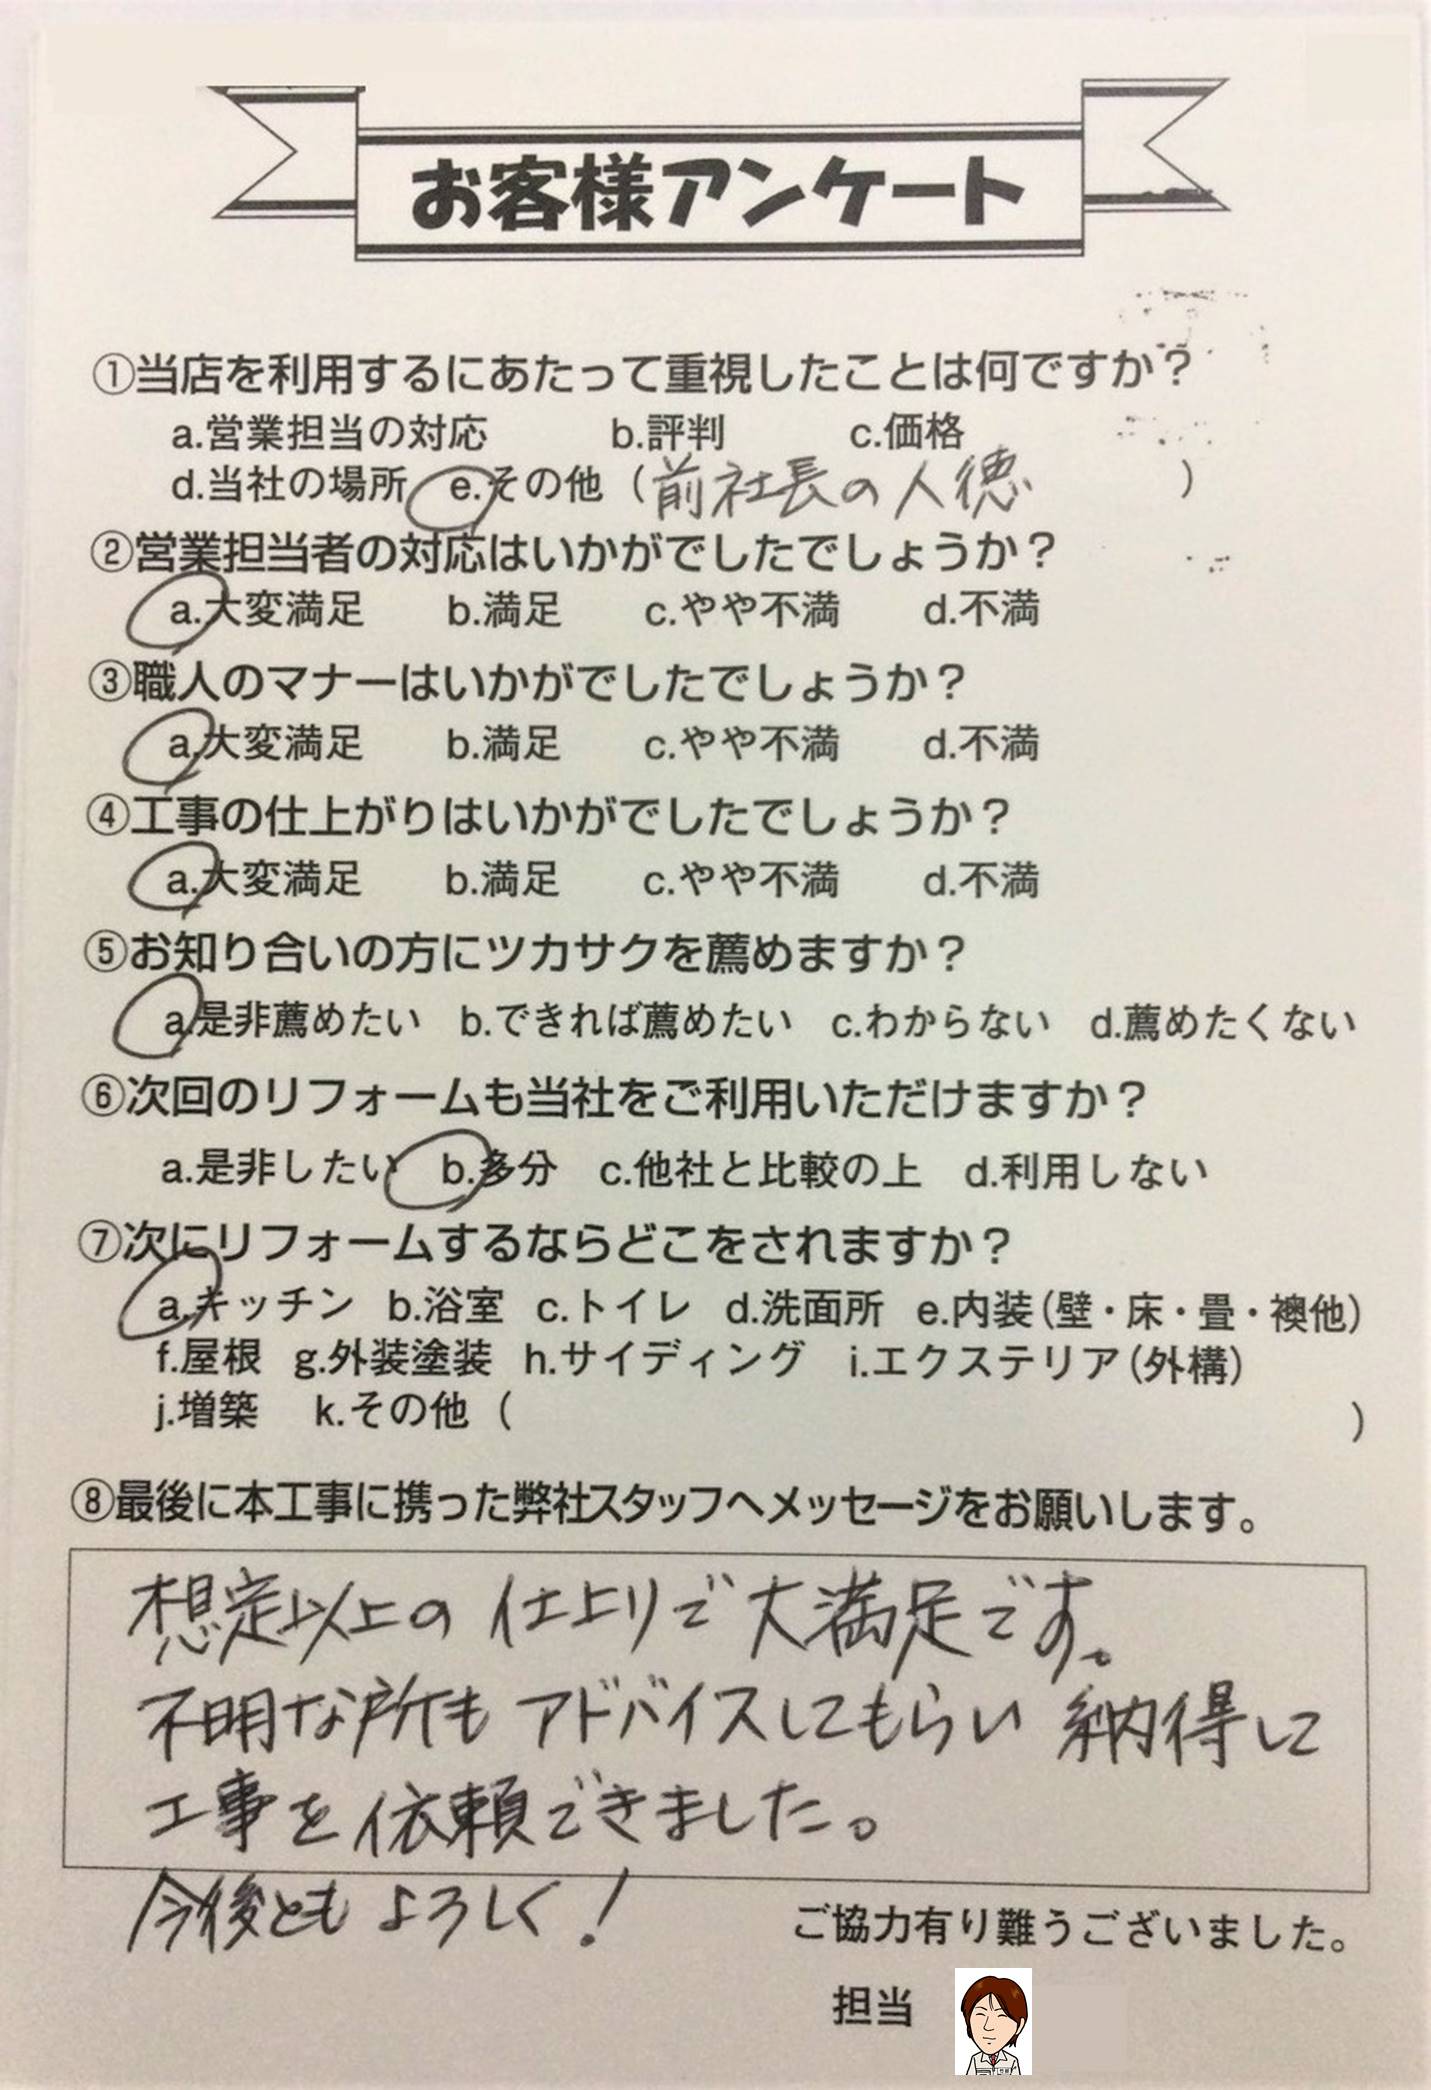 お客様アンケート
①当店を利用するにあたって重視したことは何ですか？
a.営業担当の対応 b.評判 c.価格
d.当社の場所 e.その他（前社長の人徳）
②営業担当者の対応はいかがでしたでしょうか？
a.大変満足 b.満足 c.やや不満 d.不満
③職人のマナーはいかがでしたでしょうか？
a.大変満足 b.満足 c.やや不満 d.不満
④工事の仕上がりはいかがでしたでしょうか？
a.大変満足 b.満足 c.やや不満 d.不満
⑤お知り合いの方にツカサクを薦めますか？
a.是非薦めたい b.できれば薦めたい c.わからない d.薦めたくない
⑥次回のリフォームも当社をご利用いただけますか？
a.是非したい b.多分 c.他社と比較の上 d.利用しない
⑦次にリフォームするならどこをされますか？
a.キッチン b.浴室 c.トイレ d.洗面所 e.内装（壁・床・畳・襖他）
f.屋根 g.外装塗装 h.サイディング i.エクステリア（外構）
j.増築 k.その他（ ）
⑧最後に本工事に携った弊社スタッフへメッセージをお願いします。
想定以上の仕上りで大満足です。
不明な所もアドバイスしてもらい納得して
工事を依頼できました。
今後ともよろしく！
ご協力有り難うございました。
担当